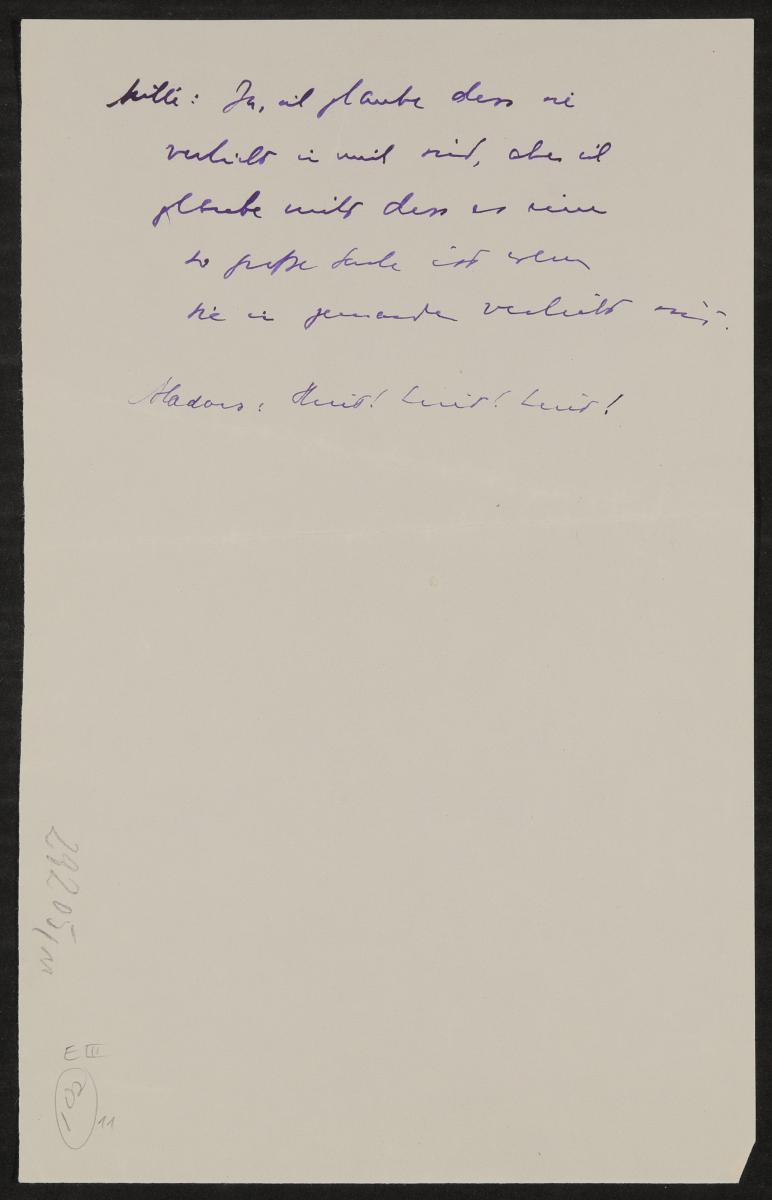 Milli: Ja, ich glaube dass sie
verliebt in mich sind, aber ich
glaube nicht dass es eine
so große Sache ist wenn
sie in jemanden verliebt sind.
Hund! Hund! Hund!
29205/11
E III
11